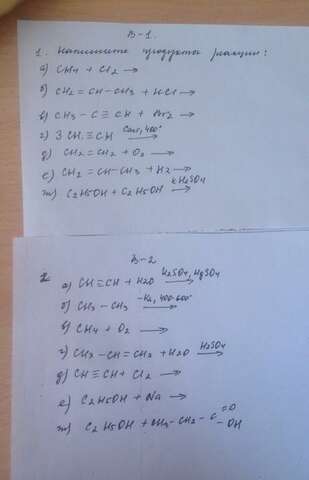 В-1.
1. Напишите продукты реакции:
а) CH4 + Cl2 →
б) CH2 = CH - CH3 + HCl →
в) CH3 - C ≡ CH + Br2 →
г) 3 CH ≡ CH Cакт, 400° →
д) CH2 = CH2 + O2 →
е) CH2 = CH - CH3 + H2 →
ж) C2H5OH + C2H5OH к H2SO4 →
В-2
а) CH ≡ CH + H2O H2SO4, HgSO4 →
б) CH3 - CH3 -H2, 400-600° →
в) CH4 + O2 →
г) CH3 - CH = CH2 + H2O H2SO4 →
д) CH ≡ CH + Cl2 →
е) C2H5OH + Na →
ж) C2H5OH + CH3 - CH2 - C =O - OH